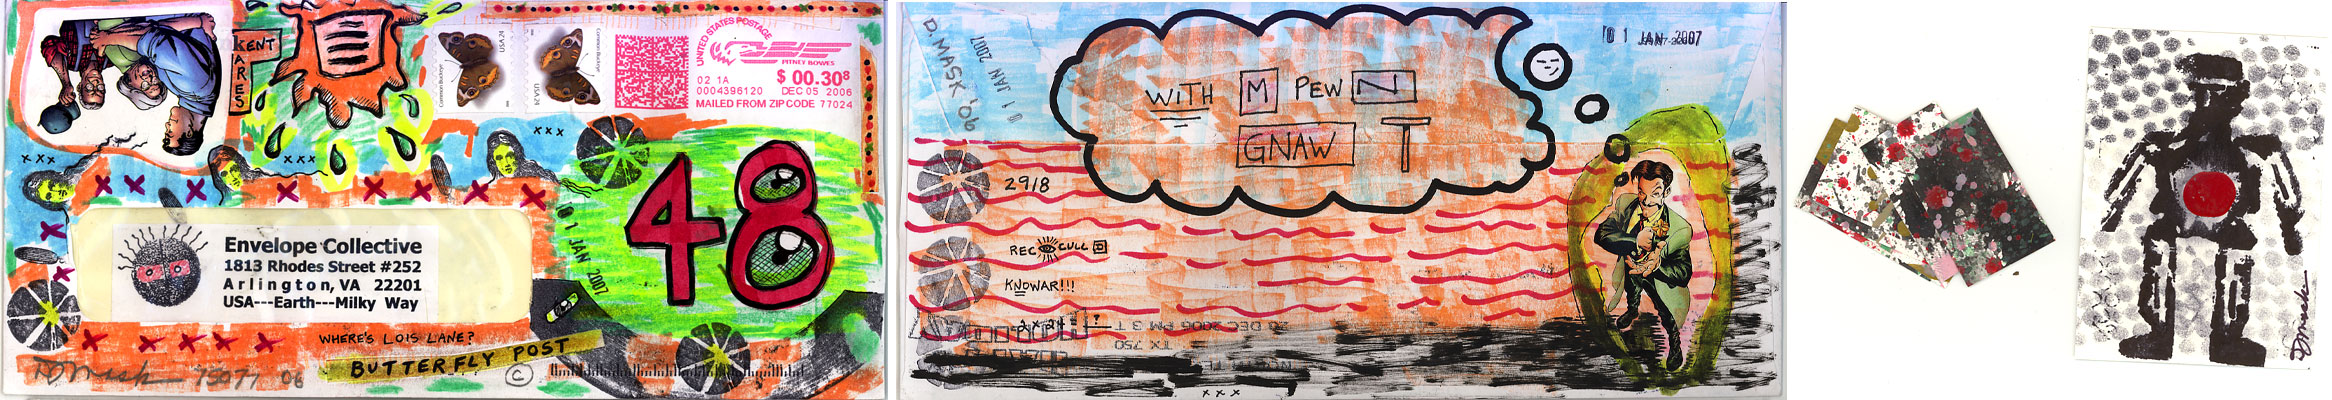 KENT
KARES
Common Buckeye
USA 24
USA 24
Common Buckeye
UNITED STATES POSTAGE
PITNEY BOWES
02 1A
$ 00.30⁸
0004396120 DEC 05 2006
MAILED FROM ZIP CODE 77024
xxx
xxx
xxx
48
Envelope Collective
1813 Rhodes Street #252
Arlington, VA 22201
USA---Earth---Milky Way
0 1 JAN 2007
WHERE'S LOIS LANE?
BUTTERFLY POST
©
D Mask 75077 06
D. MASK '06
0 1 JAN 2007
0 1 JAN 2007
WITH M PEW N
GNAW T
2918
REC CULL D
KNOWAR!!!
26 DEC 2006 PM 3 T
TX 750
xxx
DMask